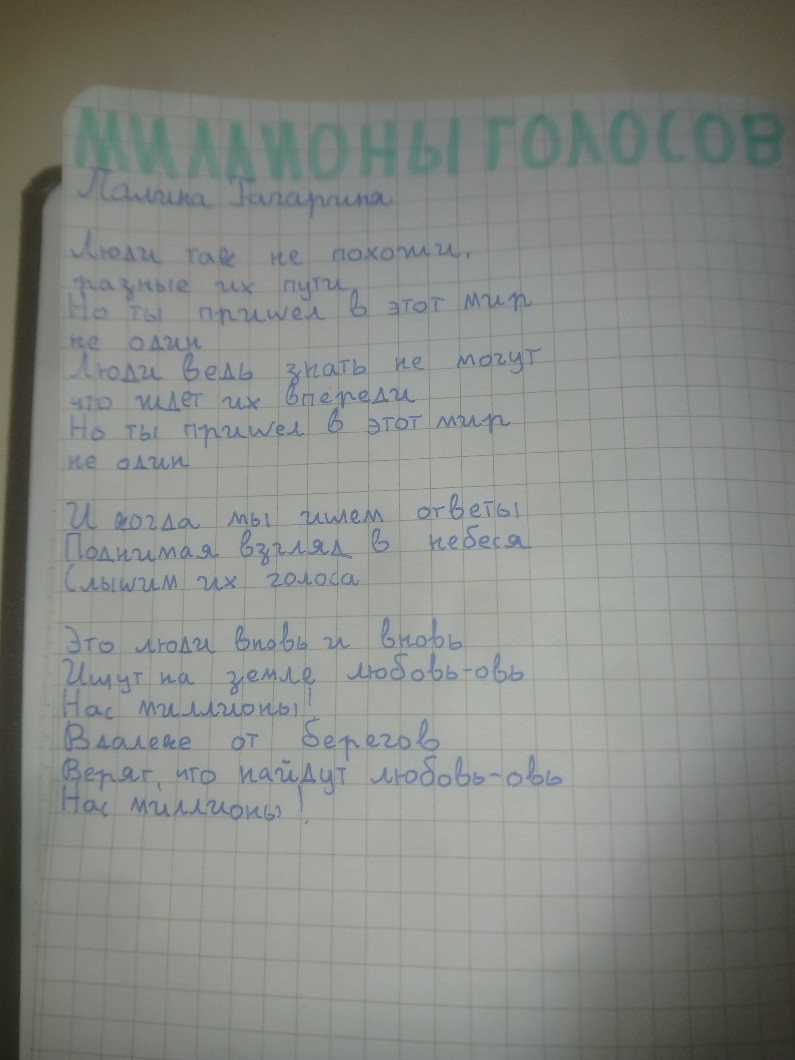 МИЛЛИОНЫ ГОЛОСОВ
Палина Гагарина
Люди так не похожи,
разные их пути
Но ты пришел в этот мир
не один
Люди ведь знать не могут
что ждет их впереди
Но ты пришел в этот мир
не один
И когда мы ищем ответы
Поднимая взгляд в небеся
Слышим их голоса
Это люди вновь и вновь
Ищут на земле любовь-овь
Нас миллионы!
Вдалеке от берегов
Верят, что найдут любовь-овь
Нас миллионы!